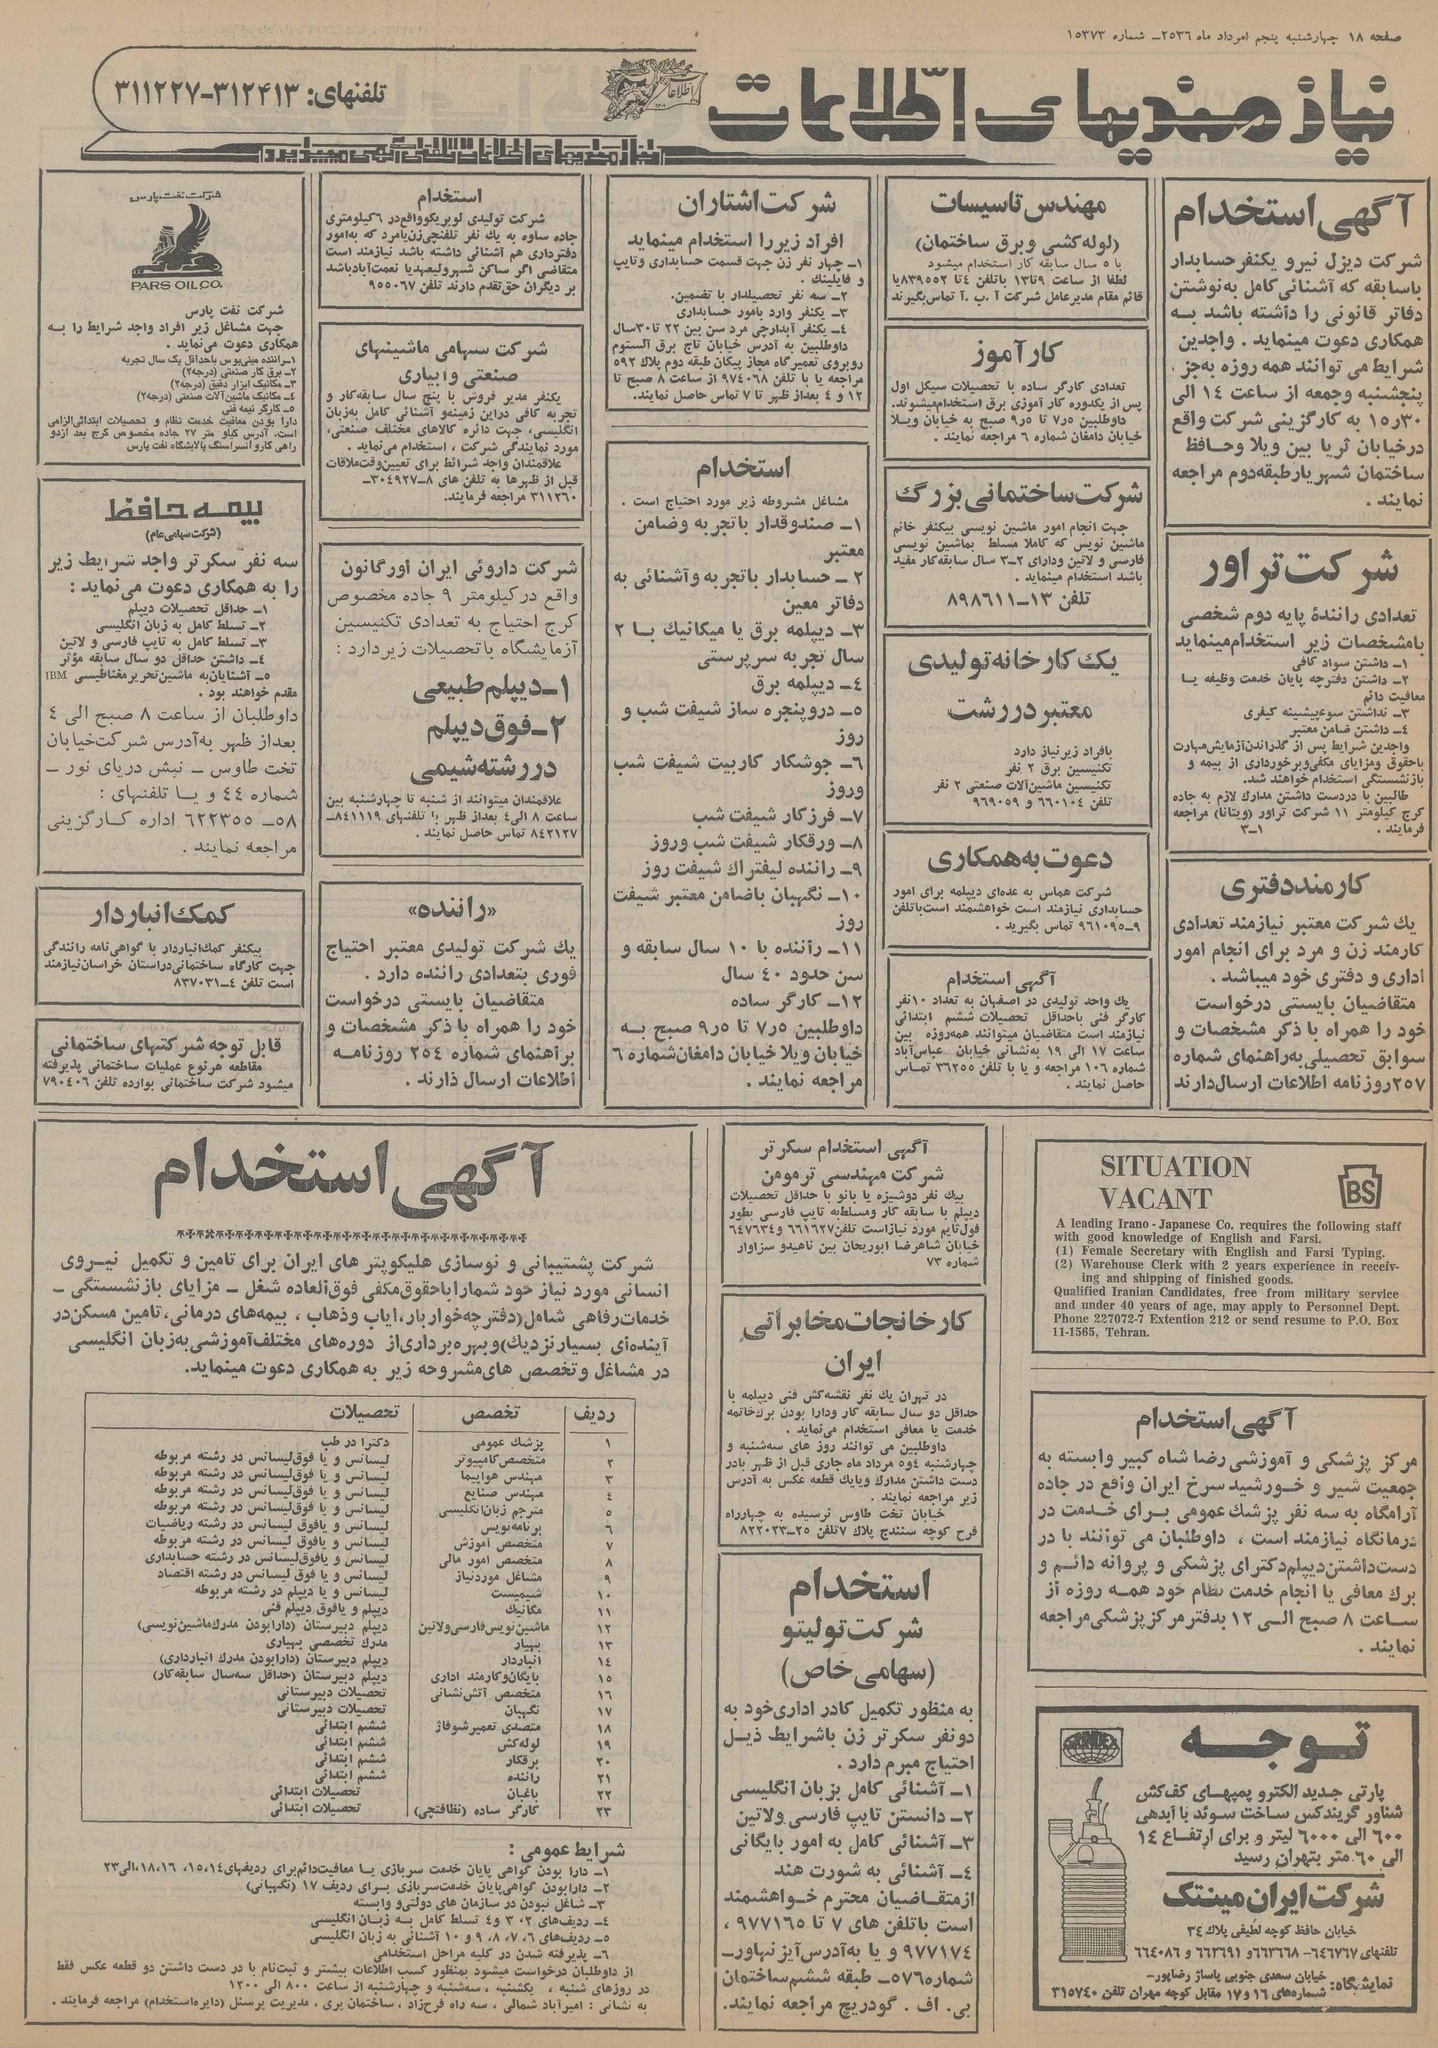 صفحه ۱۸ چهارشنبه پنجم امرداد ماه ۲۵۳۶ــ شماره ۱۵۳۷۳
نیازمندیهای اطلاعات
تلفنهای: ۳۱۲۴۱۳-۳۱۱۲۲۷
نیازمندیهای اطلاعات تلفنی آگهی میپذیرد
آگهی استخدام
شرکت دیزل نیرو یکنفرحسابدار
باسابقه که آشنائی کامل به‌نوشتن
دفاتر قانونی را داشته باشد به
همکاری دعوت مینماید . واجدین
شرایط می توانند همه روزه به‌جز
پنجشنبه وجمعه از ساعت ۱۴ الی
۱۵ر۳۰ به کارگزینی شرکت واقع
درخیابان ثریا بین ویلا وحافظ
ساختمان شهریارطبقه‌دوم مراجعه
نمایند .
شرکت تراور
تعدادی رانندهٔ پایه دوم شخصی
بامشخصات زیر استخدام‌مینماید
۱ــ داشتن سواد کافی
۲ــ داشتن دفترچه پایان خدمت وظیفه یا
معافیت دائم
۳ــ نداشتن سوءپیشینه کیفری
۴ــ داشتن ضامن معتبر
واجدین شرایط پس از گذراندن‌آزمایش‌مهارت
باحقوق ومزایای مکفی‌وبرخورداری از بیمه و
بازنشستگی استخدام خواهند شد.
طالبین با دردست داشتن مدارک لازم به جاده
کرج کیلومتر ۱۱ شرکت تراور (ویتانا) مراجعه
فرمایند . ۱ــ۳
کارمند دفتری
یک شرکت معتبر نیازمند تعدادی
کارمند زن و مرد برای انجام امور
اداری و دفتری خود میباشد .
متقاضیان بایستی درخواست
خود را همراه با ذکر مشخصات و
سوابق تحصیلی به‌راهنمای شماره
۲۵۷ روزنامه اطلاعات ارسال‌دارند
مهندس تاسیسات
(لوله‌کشی و برق ساختمان)
با ۵ سال سابقه کار استخدام میشود
لطفا از ساعت ۹تا۱۳ باتلفن ۴تا ۸۳۹۵۵۲یا
قائم مقام مدیرعامل شرکت آ . پ . آ تماس‌بگیرند
کارآموز
تعدادی کارگر ساده با تحصیلات سیکل اول
پس از یکدوره کار آموزی برق استخدام‌میشوند.
داوطلبین ۷ر۵ تا ۹ر۵ صبح به خیابان ویلا
خیابان دامغان شماره ۶ مراجعه نمایند .
شرکت ساختمانی بزرگ
جهت انجام امور ماشین نویسی بیکنفر خانم
ماشین نویس که کاملا مسلط بماشین نویسی
فارسی و لاتین ودارای ۲ــ۳ سال سابقه‌کار مفید
باشد استخدام مینماید .
تلفن ۱۳ــ۸۹۸۶۱۱
یک کارخانه تولیدی
معتبر در رشت
بافراد زیرنیاز دارد
تکنیسین برق ۲ نفر
تکنیسین ماشین‌آلات صنعتی ۲ نفر
تلفن ۶۶۰۱۰۴ و ۹۶۹۰۵۹
دعوت به همکاری
شرکت هماس به عده‌ای دیپلمه برای امور
حسابداری نیازمند است خواهشمند است‌باتلفن
۹ــ۹۶۱۰۹۵ تماس بگیرید .
آگهی استخدام
یک واحد تولیدی در اصفهان به تعداد ۱۰نفر
کارگر فنی باحداقل تحصیلات ششم ابتدائی
نیازمند است متقاضیان میتوانند همه‌روزه بین
ساعت ۱۷ الی ۱۹ به‌نشانی خیابان عباس‌آباد
شماره ۱۰۶ مراجعه و یا با تلفن ۳۶۲۵۵ تماس
حاصل نمایند .
شرکت اشتاران
افراد زیررا استخدام مینماید
۱ــ چهار نفر زن جهت قسمت حسابداری وتایپ
و فایلینگ .
۲ــ سه نفر تحصیلدار با تضمین.
۳ــ یکنفر وارد بامور حسابداری
۴ــ یکنفر آبدارچی مرد سن بین ۲۲ تا۳۰سال
داوطلبین به آدرس خیابان تاج برق آلستوم
روبروی تعمیرگاه مجاز پیکان طبقه دوم پلاک ۵۹۲
مراجعه یا با تلفن ۹۷۴۰۶۸ از ساعت ۸ صبح تا
۱۲ و ۴ بعداز ظهر تا ۷ تماس حاصل نمایند.
استخدام
مشاغل مشروطه زیر مورد احتیاج است .
۱ــ صندوقدار باتجربه وضامن
معتبر
۲ ــ حسابدار باتجربه وآشنائی به
دفاتر معین
۳ــ دیپلمه برق یا میکانیک با ۲
سال تجربه سرپرستی
۴ــ دیپلمه برق
۵ــ دروپنجره ساز شیفت شب و
روز
۶ــ جوشکار کاربیت شیفت شب
وروز
۷ــ فرزکار شیفت شب
۸ــ ورقکار شیفت شب وروز
۹ــ راننده لیفتراک شیفت روز
۱۰ــ نگهبان باضامن معتبر شیفت
روز
۱۱ــ راننده با ۱۰ سال سابقه و
سن حدود ۴۰ سال
۱۲ــ کارگر ساده
داوطلبین ۷ر۵ تا ۹ر۵ صبح به
خیابان ویلا خیابان دامغان‌شماره ۶
مراجعه نمایند .
استخدام
شرکت تولیدی لوبریکوواقع‌در ۶کیلومتری
جاده ساوه به یک نفر تلفنچی‌زن‌یامرد که به‌امور
دفترداری هم آشنائی داشته باشد نیازمند است
متقاضی اگر ساکن شهرولیعهدیا نعمت‌آبادباشد
بر دیگران حق‌تقدم دارند تلفن ۹۵۵۰۶۷
شرکت سهامی ماشینهای
صنعتی و آبیاری
یکنفر مدیر فروش با پنج سال سابقه‌کار و
تجربه کافی دراین زمینه‌و آشنائی کامل به‌زبان
انگلیسی، جهت دائره کالاهای مختلف صنعتی،
مورد نمایندگی شرکت ، استخدام می‌نماید .
علاقمندان واجد شرائط برای تعیین‌وقت‌ملاقات
قبل از ظهرها به تلفن های ۸ــ۳۰۴۹۲۷ــ
۳۱۱۳۶۰ مراجعه فرمایند.
شرکت داروئی ایران اورگانون
واقع درکیلومتر ۹ جاده مخصوص
کرج احتیاج به تعدادی تکنیسین
آزمایشگاه باتحصیلات زیردارد :
۱ــ دیپلم طبیعی
۲ــ فوق دیپلم
در رشته شیمی
علاقمندان میتوانند از شنبه تا چهارشنبه بین
ساعت ۸ الی۴ بعداز ظهر با تلفنهای ۸۴۱۱۱۹ــ
۸۴۲۱۲۷ تماس حاصل نمایند .
«راننده»
یک شرکت تولیدی معتبر احتیاج
فوری بتعدادی راننده دارد .
متقاضیان بایستی درخواست
خود را همراه با ذکر مشخصات و
برآهنمای شماره ۲۵۴ روزنامه
اطلاعات ارسال دارند .
شرکت نفت پارس
PARS OIL CO.
شرکت نفت پارس
جهت مشاغل زیر افراد واجد شرایط را به
همکاری دعوت می‌نماید .
۱ــ راننده مینی‌بوس باحداقل یک سال تجربه
۲ــ برق کار صنعتی (درجه۲)
۳ــ مکانیک ابزار دقیق (درجه۲)
۴ــ مکانیک ماشین‌آلات صنعتی (درجه۲)
۵ــ کارگر نیمه فنی
دارا بودن معافیت خدمت نظام و تحصیلات ابتدائی‌الزامی
است. آدرس کیلو متر ۲۷ جاده مخصوص کرج بعد ازدو
راهی کاروانسراسنگ پالایشگاه نفت پارس
بیمه حافظ
(شرکت سهامی عام)
سه نفر سکرتر واجد شرایط زیر
را به همکاری دعوت می‌نماید :
۱ــ حداقل تحصیلات دیپلم
۲ــ تسلط کامل به زبان انگلیسی
۳ــ تسلط کامل به تایپ فارسی و لاتین
۴ــ داشتن حداقل دو سال سابقه مؤثر
۵ــ آشنایان‌به ماشین‌تحریرمغناطیسی IBM
مقدم خواهند بود .
داوطلبان از ساعت ۸ صبح الی ۴
بعداز ظهر به‌آدرس شرکت‌خیابان
تخت طاوس ــ نبش دریای نور ــ
شماره ۴۴ و یا تلفنهای :
۵۸ــ ۶۲۲۳۵۵ اداره کارگزینی
مراجعه نمایند .
کمک انباردار
بیکنفر کمک‌انباردار با گواهی‌نامه رانندگی
جهت کارگاه ساختمانی‌دراستان خراسان‌نیازمند
است تلفن ۴ــ۸۳۷۰۳۱
قابل توجه شرکتهای ساختمانی
مقاطعه هرنوع عملیات ساختمانی پذیرفته
میشود شرکت ساختمانی بوارده تلفن ۷۹۰۴۰۶
SITUATION
VACANT
BS
A leading Irano - Japanese Co. requires the following staff
with good knowledge of English and Farsi.
(1) Female Secretary with English and Farsi Typing.
(2) Warehouse Clerk with 2 years experience in receiv-
ing and shipping of finished goods.
Qualified Iranian Candidates, free from military service
and under 40 years of age, may apply to Personnel Dept.
Phone 227072-7 Extention 212 or send resume to P.O. Box
11-1565, Tehran.
آگهی استخدام
مرکز پزشکی و آموزشی رضا شاه کبیر وابسته به
جمعیت شیر و خورشید سرخ ایران واقع در جاده
آرامگاه به سه نفر پزشک عمومی برای خدمت در
درمانگاه نیازمند است ، داوطلبان می توانند با در
دست‌داشتن‌دیپلم‌دکترای پزشکی و پروانه دائم و
برگ معافی یا انجام خدمت نظام خود همه روزه از
ساعت ۸ صبح الی ۱۲ بدفتر مرکز پزشکی‌مراجعه
نمایند .
توجه
GRINDEX
پارتی جدید الکترو پمپهای کف‌کش
شناور گریندکس ساخت سوئد با آبدهی
۶۰۰ الی ۶۰۰۰ لیتر و برای ارتفاع ۱۴
الی ۶۰ متر بتهران رسید
شرکت ایران مینتک
خیابان حافظ کوچه لطیفی پلاک ۳۴
تلفنهای ۶۴۶۷۶۷-۶۶۳۶۶۸و ۶۶۲۶۹۱ و ۶۶۴۰۸۶
نمایشگاه: خیابان سعدی جنوبی پاساژ رضاپور-
شماره‌های ۱۶ و ۱۷ مقابل کوچه مهران تلفن ۳۱۵۷۴۰
آگهی استخدام سکرتر
شرکت مهندسی ترمومن
بیک نفر دوشیزه یا بانو با حداقل تحصیلات
دیپلم با سابقه کار ومسلط‌به تایپ فارسی بطور
فول‌تایم مورد نیازاست تلفن۶۶۱۶۲۷ و۶۴۷۶۳۴
خیابان شاهرضا ابوریحان بین ناهیدو سزاوار
شماره ۷۳
کارخانجات مخابراتی
ایران
در تهران یک نفر نقشه‌کش فنی دیپلمه با
حداقل دو سال سابقه کار ودارا بودن برگ‌خاتمه
خدمت یا معافی استخدام می‌نماید .
داوطلبین می توانند روز های سه‌شنبه و
چهارشنبه ۴و۵ مرداد ماه جاری قبل از ظهر بادر
دست داشتن مدارک ویایک قطعه عکس به آدرس
زیر مراجعه نمایند .
خیابان تخت طاوس نرسیده به چهارراه
فرح کوچه سنندج پلاک ۷تلفن ۲۵ــ۸۲۲۰۲۳
استخدام
شرکت تولیتو
(سهامی خاص)
به منظور تکمیل کادر اداری‌خود به
دونفر سکرتر زن باشرایط ذیل
احتیاج مبرم دارد .
۱ــ آشنائی کامل بزبان انگلیسی
۲ــ دانستن تایپ فارسی ولاتین
۳ــ آشنائی کامل به امور بایگانی
۴ــ آشنائی به شورت هند
ازمتقاضیان محترم خواهشمند
است باتلفن های ۷ تا ۹۷۷۱۶۵ ،
۹۷۷۱۷۴ و یا به‌آدرس‌آیزنهاورــ
شماره۵۷۶ــ طبقه ششم‌ساختمان
بی . اف . گودریچ مراجعه نمایند.
آگهی استخدام
شرکت پشتیبانی و نوسازی هلیکوپتر های ایران برای تامین و تکمیل نیروی
انسانی مورد نیاز خود شماراباحقوق‌مکفی فوق‌العاده شغل ــ مزایای بازنشستگی ــ
خدمات‌رفاهی شامل(دفترچه‌خواربار،ایاب وذهاب ، بیمه‌های درمانی،تامین مسکن‌در
آینده‌ای بسیارنزدیک)وبهره‌برداری‌از دوره‌های مختلف‌آموزشی‌به‌زبان انگلیسی
در مشاغل وتخصص های‌مشروحه زیر به همکاری دعوت مینماید.
ردیف تخصص تحصیلات
۱ پزشک عمومی دکترا در طب
۲ متخصص کامپیوتر لیسانس و یا فوق‌لیسانس در رشته مربوطه
۳ مهندس هواپیما لیسانس و یا فوق‌لیسانس در رشته مربوطه
۴ مهندس صنایع لیسانس و یا فوق‌لیسانس در رشته مربوطه
۵ مترجم زبان‌انگلیسی لیسانس و یا فوق‌لیسانس در رشته مربوطه
۶ برنامه‌نویس لیسانس و یافوق لیسانس در رشته ریاضیات
۷ متخصص آموزش لیسانس و یا فوق‌لیسانس در رشته مربوطه
۸ متخصص امور مالی لیسانس و یافوق‌لیسانس در رشته حسابداری
۹ مشاغل موردنیاز لیسانس و یافوق‌لیسانس در رشته اقتصاد
۱۰ شیمیست لیسانس و یا دیپلم در رشته مربوطه
۱۱ مکانیک دیپلم و یافوق دیپلم فنی
۱۲ ماشین‌نویس‌فارسی‌ولاتین دیپلم دبیرستان (دارابودن مدرک‌ماشین‌نویسی)
۱۳ بهیار مدرک تخصصی بهیاری
۱۴ انباردار دیپلم دبیرستان (دارابودن مدرک انبارداری)
۱۵ بایگان‌وکارمند اداری دیپلم دبیرستان (حداقل سه‌سال سابقه‌کار)
۱۶ متخصص آتش‌نشانی تحصیلات دبیرستانی
۱۷ نگهبان تحصیلات دبیرستانی
۱۸ متصدی تعمیرشوفاژ ششم ابتدائی
۱۹ لوله‌کش ششم ابتدائی
۲۰ برقکار ششم ابتدائی
۲۱ راننده ششم ابتدائی
۲۲ باغبان تحصیلات ابتدائی
۲۳ کارگر ساده (نظافتچی) تحصیلات ابتدائی
شرایط عمومی :
۱ــ دارا بودن گواهی پایان خدمت سربازی یا معافیت‌دائم‌برای ردیفهای۱۴،۱۵، ۱۶، ۱۸الی۲۳
۲ــ دارابودن گواهی‌پایان خدمت‌سربازی برای ردیف ۱۷ (نگهبانی)
۳ــ شاغل نبودن در سازمان های دولتی‌و وابسته
۴ــ ردیف‌های ۲، ۳ و۴ تسلط کامل به زبان انگلیسی
۵ــ ردیف‌های ۶، ۷، ۸، ۹ و ۱۰ آشنائی به زبان انگلیسی
۶ــ پذیرفته شدن در کلیه مراحل استخدامی
از داوطلبان درخواست میشود بمنظور کسب اطلاعات بیشتر و ثبت‌نام با در دست داشتن دو قطعه عکس فقط
در روزهای شنبه ، یکشنبه ، سه‌شنبه و چهارشنبه از ساعت ۸۰۰ الی ۱۲۰۰
به نشانی : امیرآباد شمالی ، سه راه فرح‌زاد ، ساختمان پری ، مدیریت پرسنل (دایره‌استخدام) مراجعه فرمایند .